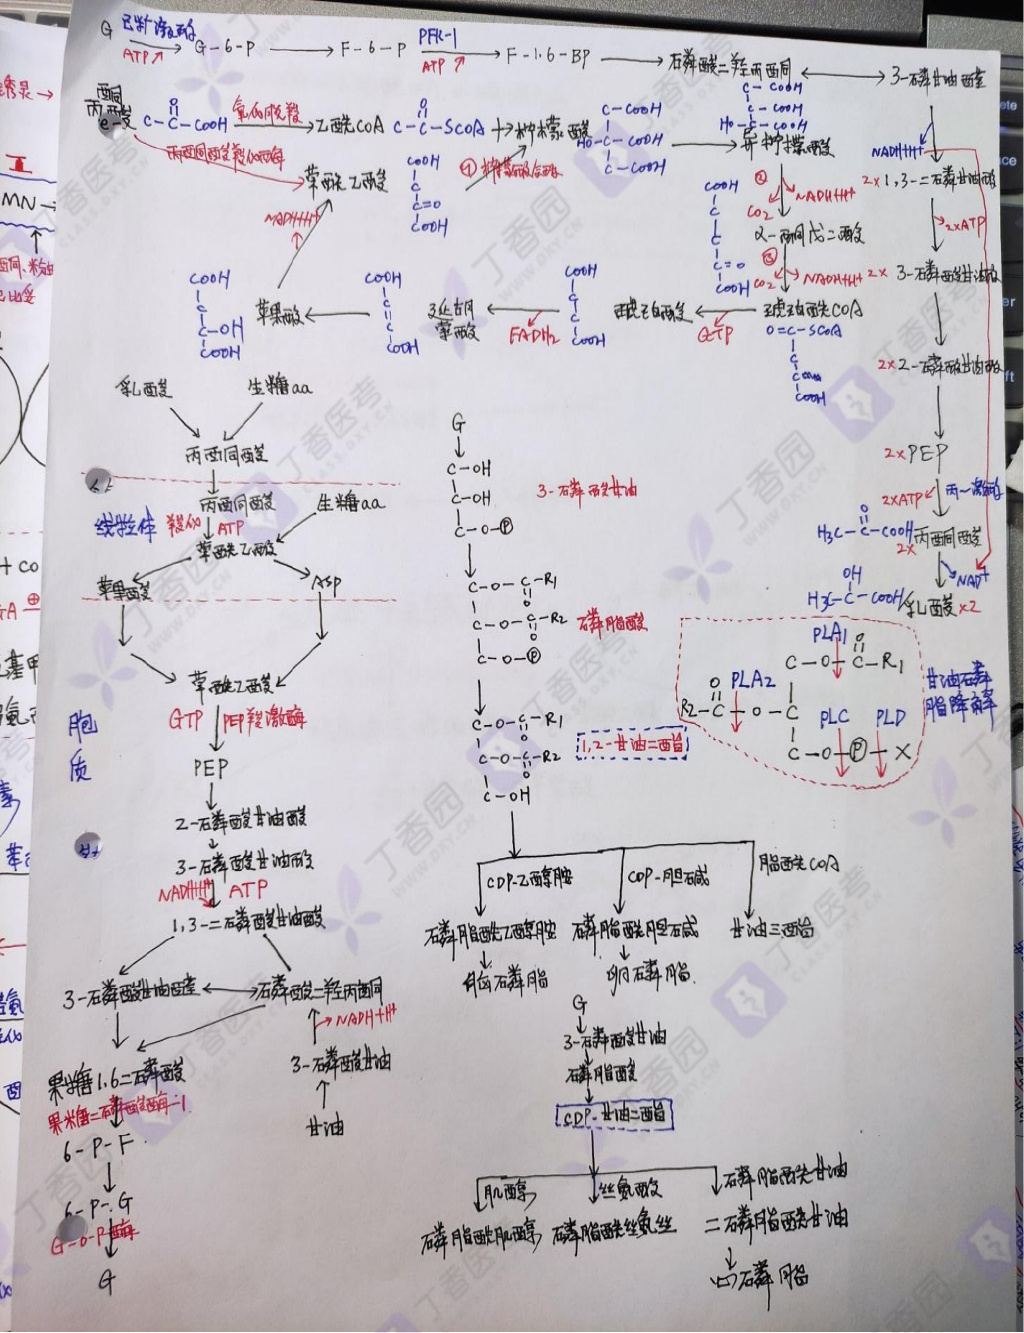 G 己糖激酶 G-6-P F-6-P PFK-1 F-1.6-BP 磷酸二羟丙酮 3-磷甘油醛
ATP↗ ATP↗
酮
丙酸 C-C-COOH 氧化脱羧 乙酰COA C-C-SCOA 柠檬酸 C-COOH 异柠檬酸
O O HO-C-COOH C-COOH
C-COOH
C-COOH
C-COOH
HO-C-COOH
丙酮酸羧化酶 草酰乙酸 ①柠檬酸合酶
COOH
C
C=O
COOH
NADH+H+
NADH+H+ 2×1,3-二磷甘油酸
② CO2 NADH+H+
α-酮戊二酸 2×ATP
③ CO2 NADH+H+ 2× 3-磷酸甘油酸
COOH
C
C
C=O
COOH
COOH
C
C-OH
COOH
苹果酸
COOH
C
C
COOH
延胡
索酸 FADH2
COOH
C
C
COOH
琥珀酸 GTP 琥珀酰COA
O=C-SCOA
C
C
COOH
2×2-磷酸甘油酸
2×PEP
2×ATP 丙-激酶
H3C-C-COOH 2× 丙酮酸
O
NAD+
OH
H3C-C-COOH 乳酸×2
乳酸 生糖aa
丙酮酸
线粒体 丙酮酸 生糖aa
羧化 ATP
草酰乙酸
苹果酸 ASP
胞
质
草酰乙酸
GTP PEP羧激酶
PEP
2-磷酸甘油酸
3-磷酸甘油酸
NADH+H+ ATP
1,3-二磷酸甘油酸
3-磷酸甘油醛 磷酸二羟丙酮
NADH+H+
3-磷酸甘油
甘油
果糖1,6二磷酸
果糖二磷酸酶-1
6-P-F
6-P-G
G-6-P酶
G
G
C-OH
C-OH
C-O-P
3-磷酸甘油
C-O-C-R1
O
C-O-C-R2
O
C-O-P
磷脂酸
C-O-C-R1
O
C-O-C-R2
O
C-OH
1,2-甘油二酯
PLA1
O
C-O-C-R1
PLA2
O
R2-C-O-C
PLC PLD
C-O-P-X
甘油磷
脂降解
CDP-乙醇胺 CDP-胆碱 脂酰COA
磷脂酰乙醇胺 磷脂酰胆碱 甘油三酯
脑磷脂 卵磷脂
G
3-磷酸甘油
磷脂酸
CDP-甘油二酯
肌醇 丝氨酸 磷脂酰甘油
磷脂酰肌醇 磷脂酰丝氨丝 二磷脂酰甘油
心磷脂
MN→
+ CO
GA ⊕
丁香园
丁香医考
WWW.DXY.CN
CLASS.DXY.CN